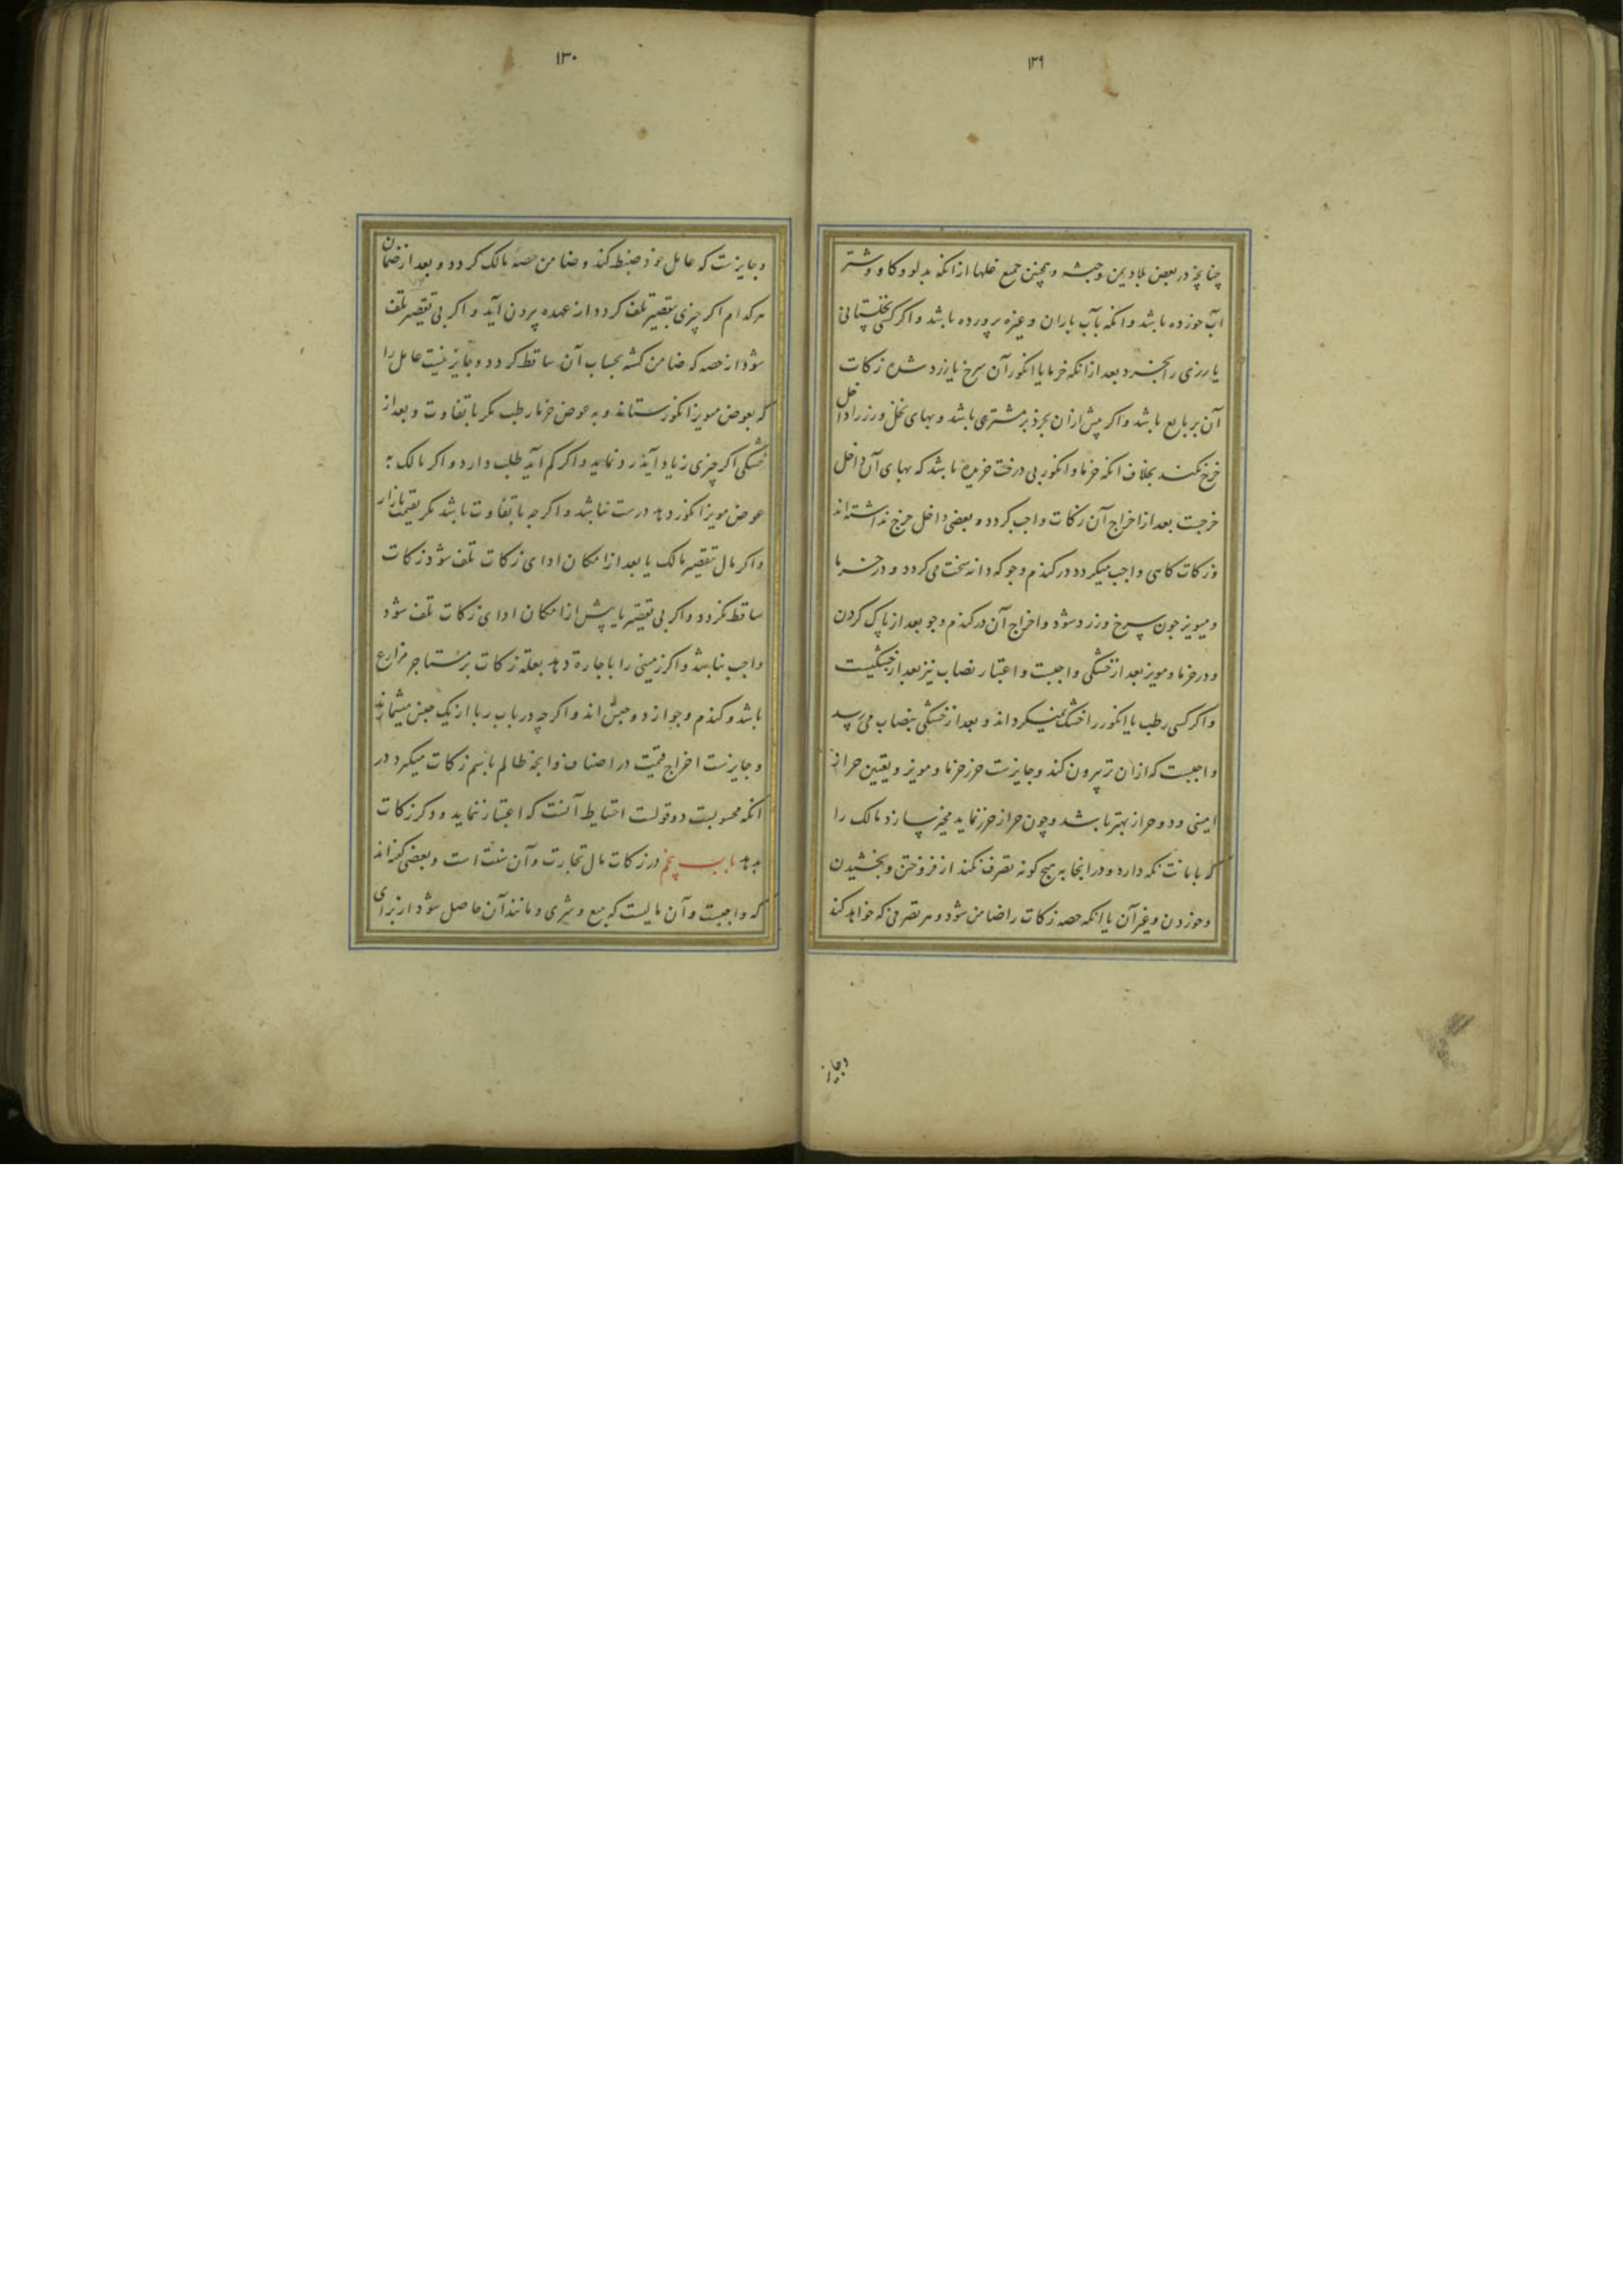 ۱۲۹
چنانچه در بعض بلاد یمن و حبشه و همچنین جمیع غلها از انکه بدلو و کاو و شتر
آب خورده باشد و انکه بآب باران و غیره پرورده باشد و اکر کسی نخلستانی
یا رزی را بخرد بعد از انکه خرما یا انکور آن سرخ یا زرد شده زکات
آن بر بایع باشد و اکر پیش از ان بخرد بر مشتری باشد و بهای نخل و رز را داخل
خرج نکند بخلاف انکه خرما و انکور بی درخت خریده باشد که بهای آن داخل
خرجست بعد از اخراج آن زکات واجب کردد و بعضی داخل خرج نداشته‌اند
و زکات کاهی واجب میکردد در کندم و جو که دانه سخت می کردد و در خرما
و میویز چون سرخ و زرد شود و اخراج آن در کندم و جو بعد از پاک کردن
و در خرما و مویز بعد از خشکی واجبست و اعتبار نصاب نیز بعد از خشکیست
و اکر کسی رطب یا انکور را خشک نمیکرداند و بعد از خشکی بنصاب می رسد
واجبست که از ان تر بیرون کند و جایزست حرز خرما و مویز و تعیین حراز
امینی و دو حراز بهتر باشد و چون حراز حرز نماید مخیر سازد مالک را
که بامانت نکه دارد و در انجا به هیچ کونه تصرف نکند از فروختن و بخشیدن
و خوردن و غیر آن یا انکه حصه زکات را ضامن شود و هر تصرفی که خواهد کند
وجایز
۱۳۰
و جایزست که عامل خود ضبط کند و ضامن حصه مالک کردد و بعد از ضمان
هر کدام اکر چیزی بتقصیر تلف کردد از عهده بیرون آید و اکر بی تقصیر تلف
شود از حصه که ضامن کشته بحساب آن ساقط کردد و جایز نیست عامل را
که بعوض مویز انکور ستاند و به عوض خرما رطب مکر با تفاوت و بعد از
خشکی اکر چیزی زیاد آید رد نماید و اکر کم آید طلب دارد و اکر مالک به
عوض مویز انکور دهد درست نباشد و اکر چه با تفاوت باشد مکر بقیمت بازار
و اکر مال بتقصیر مالک یا بعد از امکان ادای زکات تلف شود زکات
ساقط نکردد و اکر بی تقصیر یا پیش از امکان ادای زکات تلف شود
واجب نباشد و اکر زمینی را باجاره دهد بغله زکات بر مستاجر مزارع
باشد و کندم و جو از دو جنس اند و اکر چه در باب ربا از یک جنس میشمارند
و جایزست اخراج قیمت در اصناف و انچه ظالم باسم زکات میکیرد در
انکه محسوبست دو قولست احتیاط آنست که اعتبار ننماید و دکر زکات
بدهد باب پنجم در زکات مال تجارت و آن سنت است و بعضی کفته‌اند
که واجبست و آن مالیست که ببیع و شری و مانند آن حاصل شود از برای